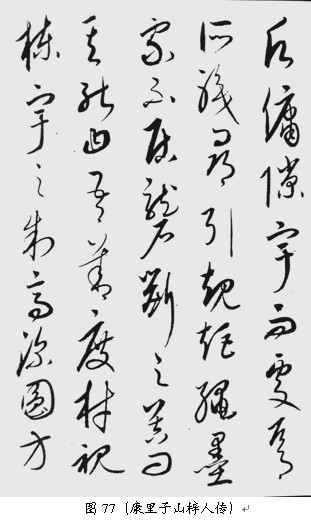 願傭隙宇而處焉
所職尋引規矩繩墨
家不居礱斲之器問
其能曰吾善度材視
棟宇之制高深圓方
图 77（康里子山梓人传）